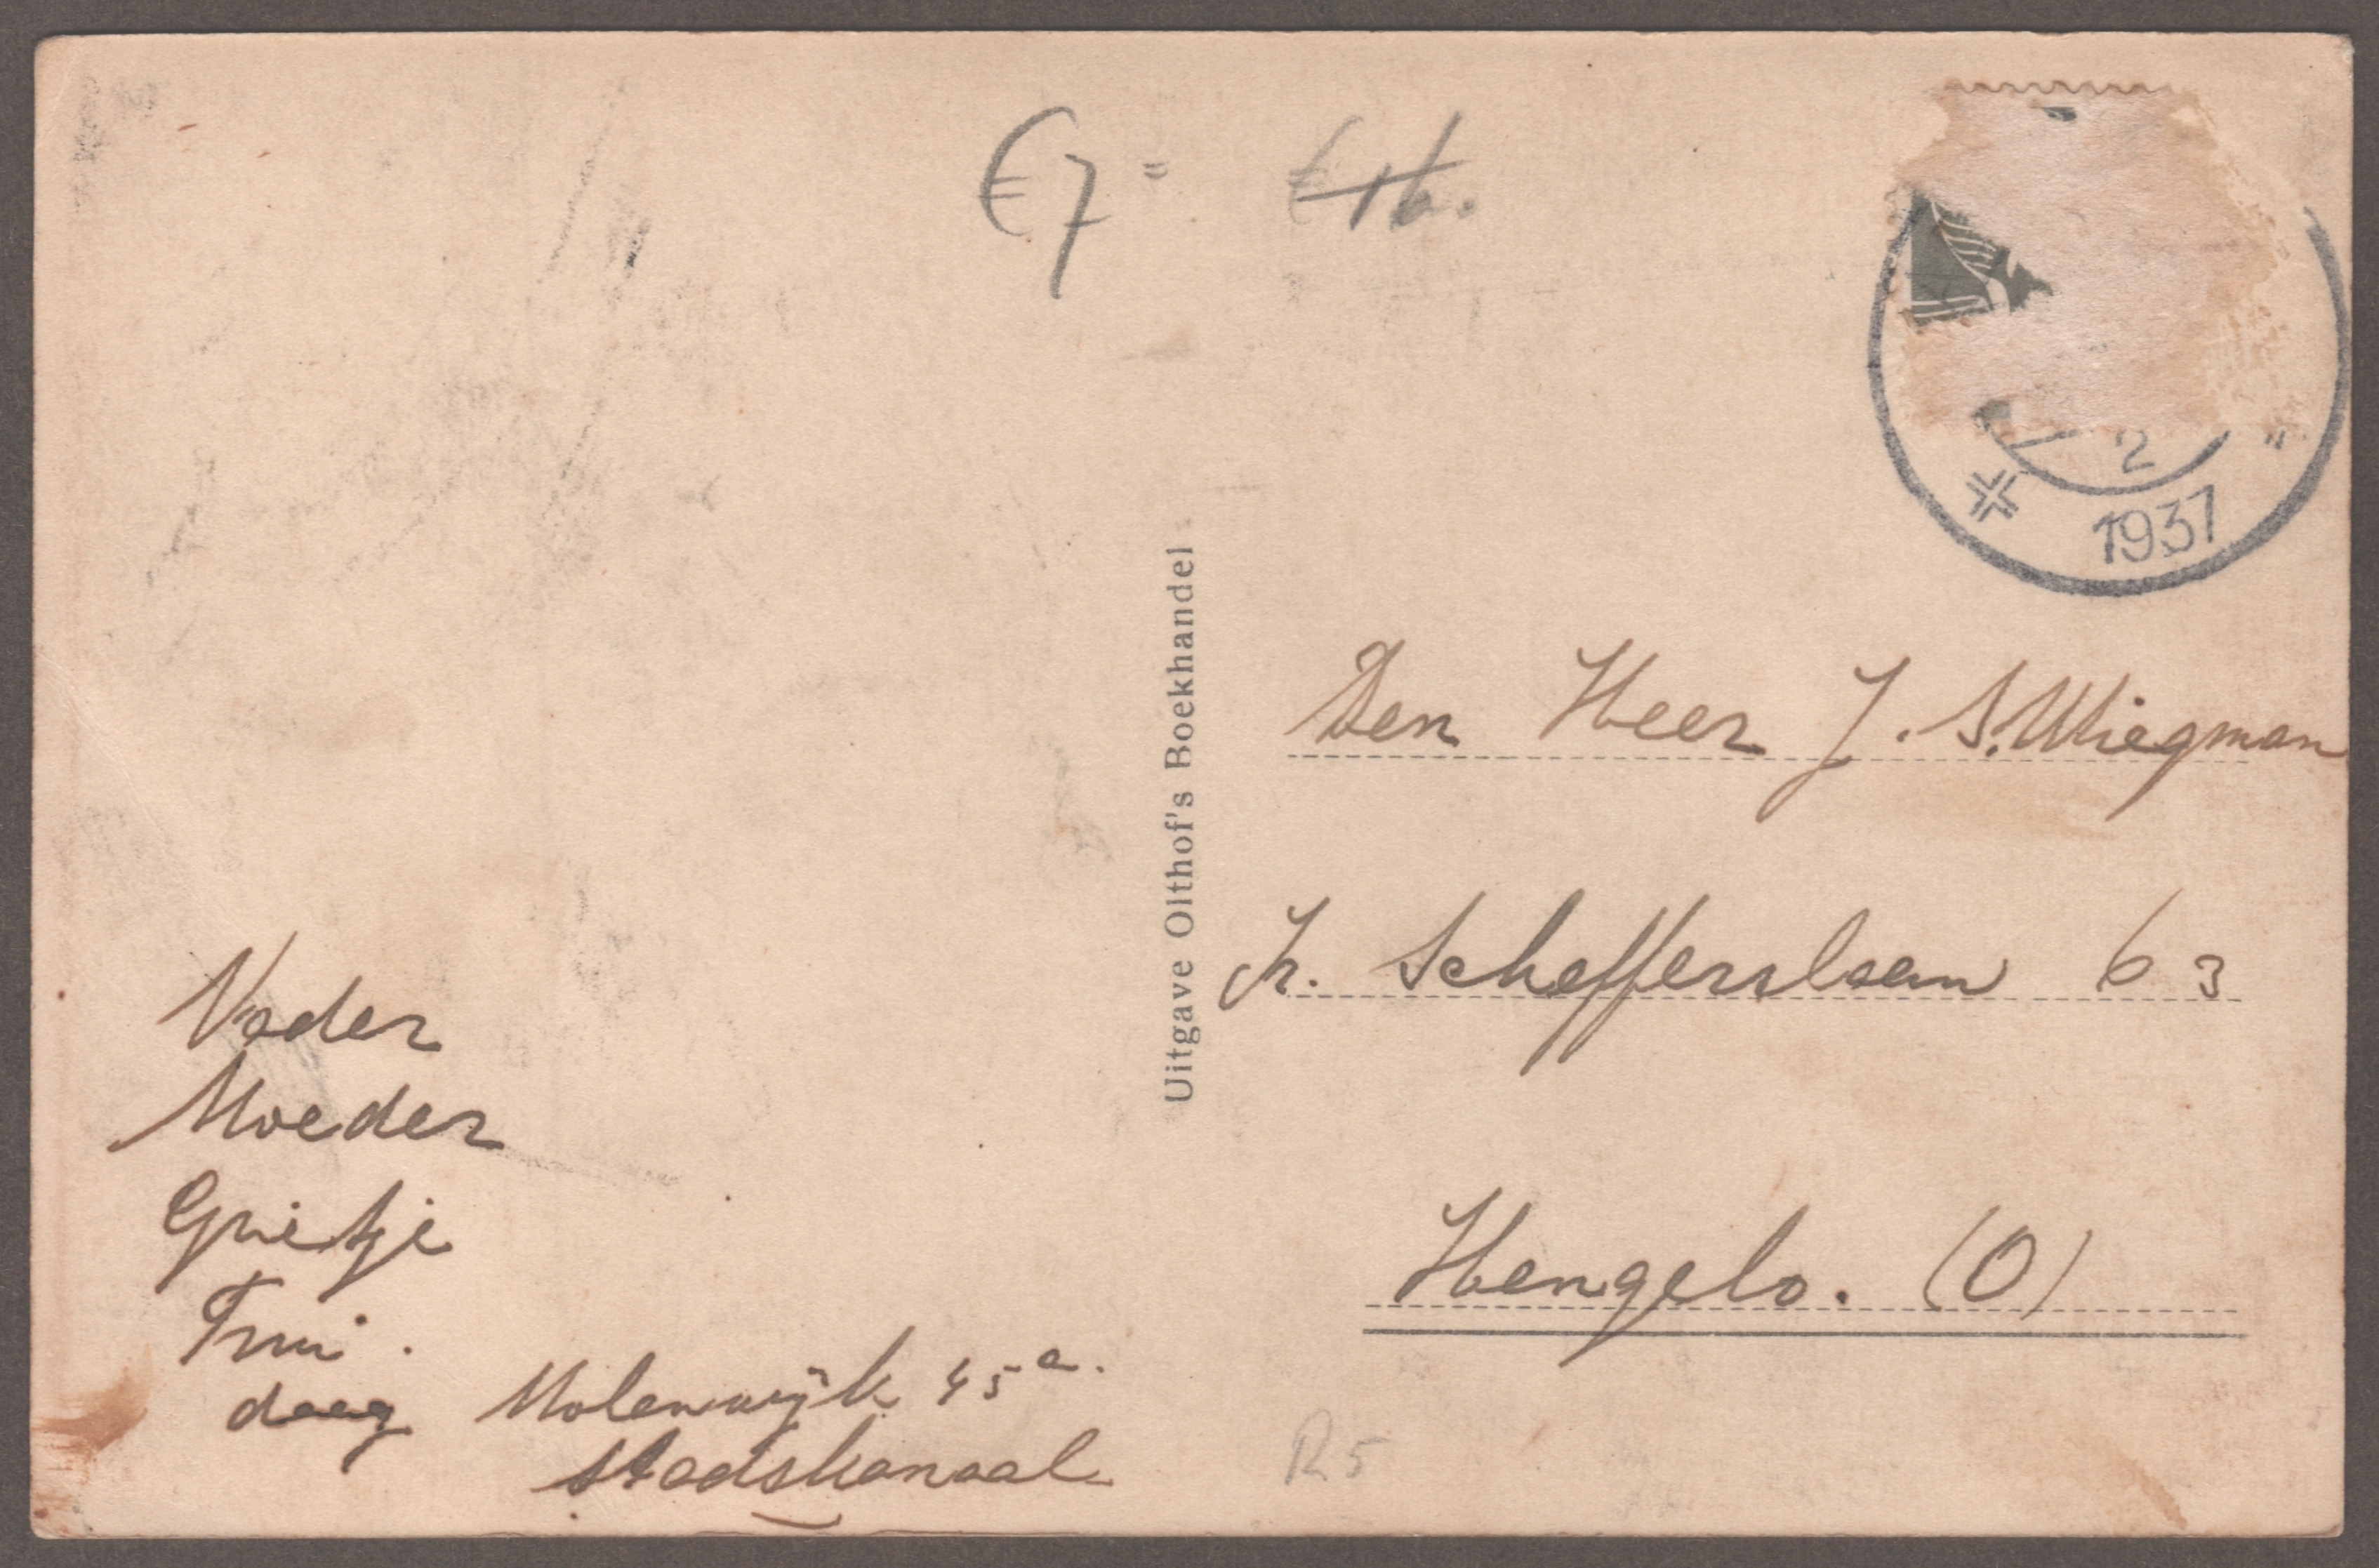 €7=
€16.
2
1937
Uitgave Olthof's Boekhandel
Den Heer J. S. Wiegman
Jr. Scheffersslaan 63
Hengelo. (O)
Vader
Moeder
Grietje
Trui.
daag
Molenwijk 45a.
Stadskanaal
R5